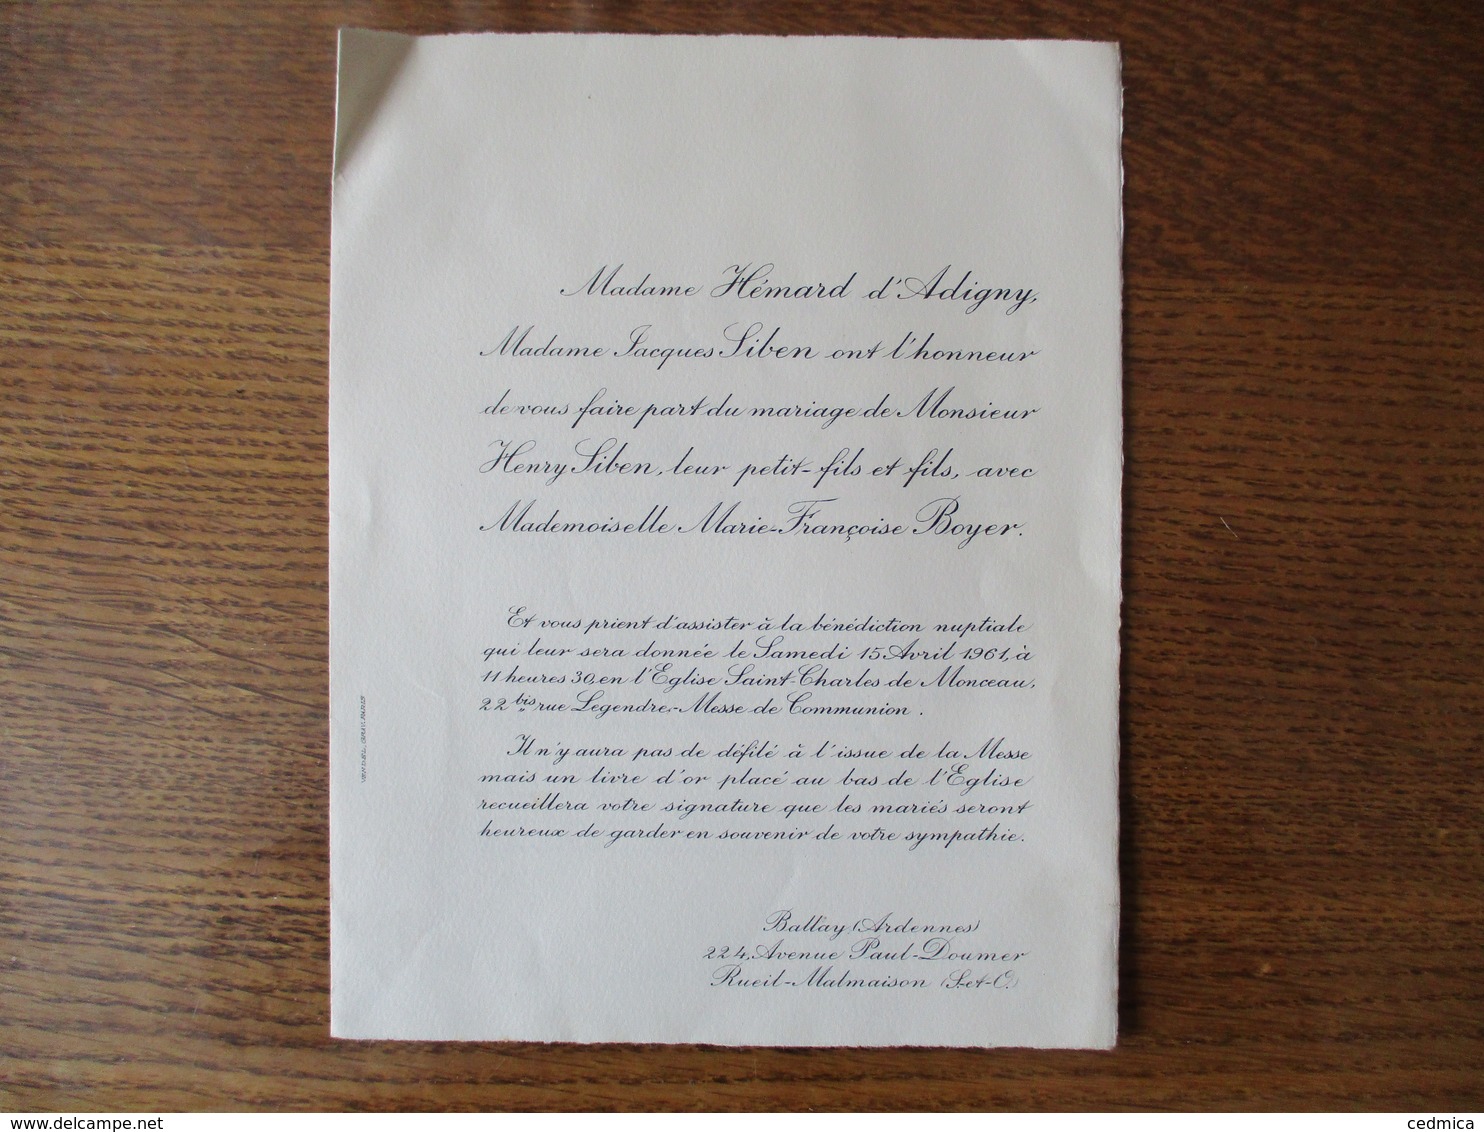 Madame Hémard d'Adigny,
Madame Jacques Siben ont l'honneur
de vous faire part du mariage de Monsieur
Henry Siben, leur petit-fils et fils, avec
Mademoiselle Marie-Françoise Boyer.
Et vous prient d'assister à la bénédiction nuptiale
qui leur sera donnée le Samedi 15 Avril 1961, à
11 heures 30, en l'Eglise Saint-Charles de Monceau,
22 bis rue Legendre.-Messe de Communion.
Il n'y aura pas de défilé à l'issue de la Messe
mais un livre d'or placé au bas de l'Eglise
recueillera votre signature que les mariés seront
heureux de garder en souvenir de votre sympathie.
Ballay (Ardennes)
224, Avenue Paul-Doumer
Rueil-Malmaison (S.-et-O.)
PARIS
cedmica